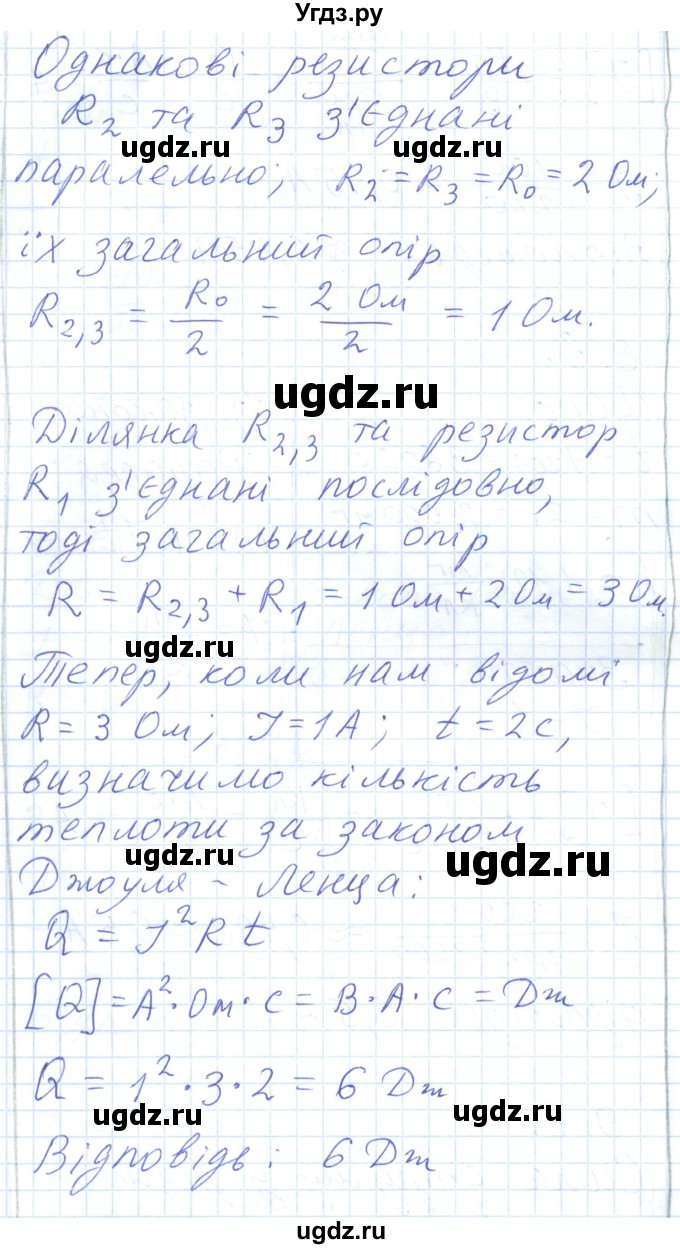 Угдз.ру
Однакові резистори
R₂ та R₃ з'єднані
ugdz.ru ugdz.ru
паралельно; R₂ = R₃ = R₀ = 2 Ом;
їх загальний опір
R₂,₃ = R₀/2 = 2 Ом/2 = 1 Ом.
ugdz.ru ugdz.ru
ugdz.ru
Ділянка R₂,₃ та резистор
R₁ з'єднані послідовно,
ugdz.ru ugdz.ru
тоді загальний опір
R = R₂,₃ + R₁ = 1 Ом + 2 Ом = 3 Ом.
ugdz.ru
Тепер, коли нам відомі
R = 3 Ом; I = 1А; t = 2с,
ugdz.ru
визначимо кількість
теплоти за законом
ugdz.ru ugdz.ru
Джоуля - Ленца:
Q = I²Rt
ugdz.ru
[Q] = А²·Ом·с = В·А·с = Дж
Q = 1²·3·2 = 6 Дж
ugdz.ru ugdz.ru
Відповідь: 6 Дж
ugdz.ru